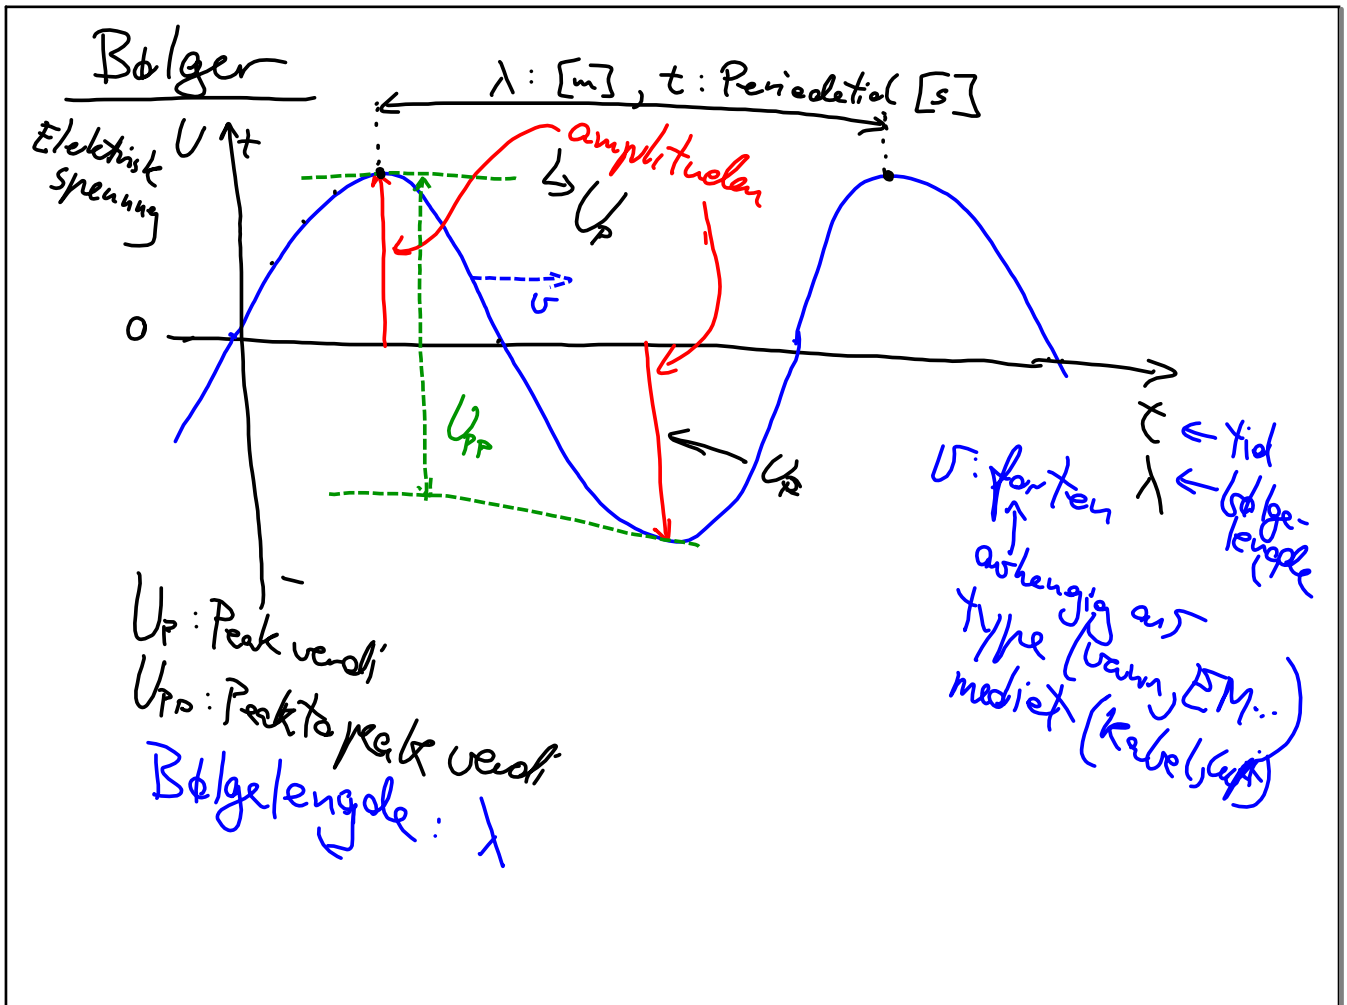 Bølger
λ : [m] , t : Periodetid [s]
Elektrisk
spenning
U
+
amplituden
Up
v
0
Upp
Up
t ← tid
λ ← bølge-
lengde
v : farten
avhengig av
type (vann, EM...)
mediet (kabel, luft)
−
Up : Peak verdi
Upp : Peak to peak verdi
Bølgelengde : λ